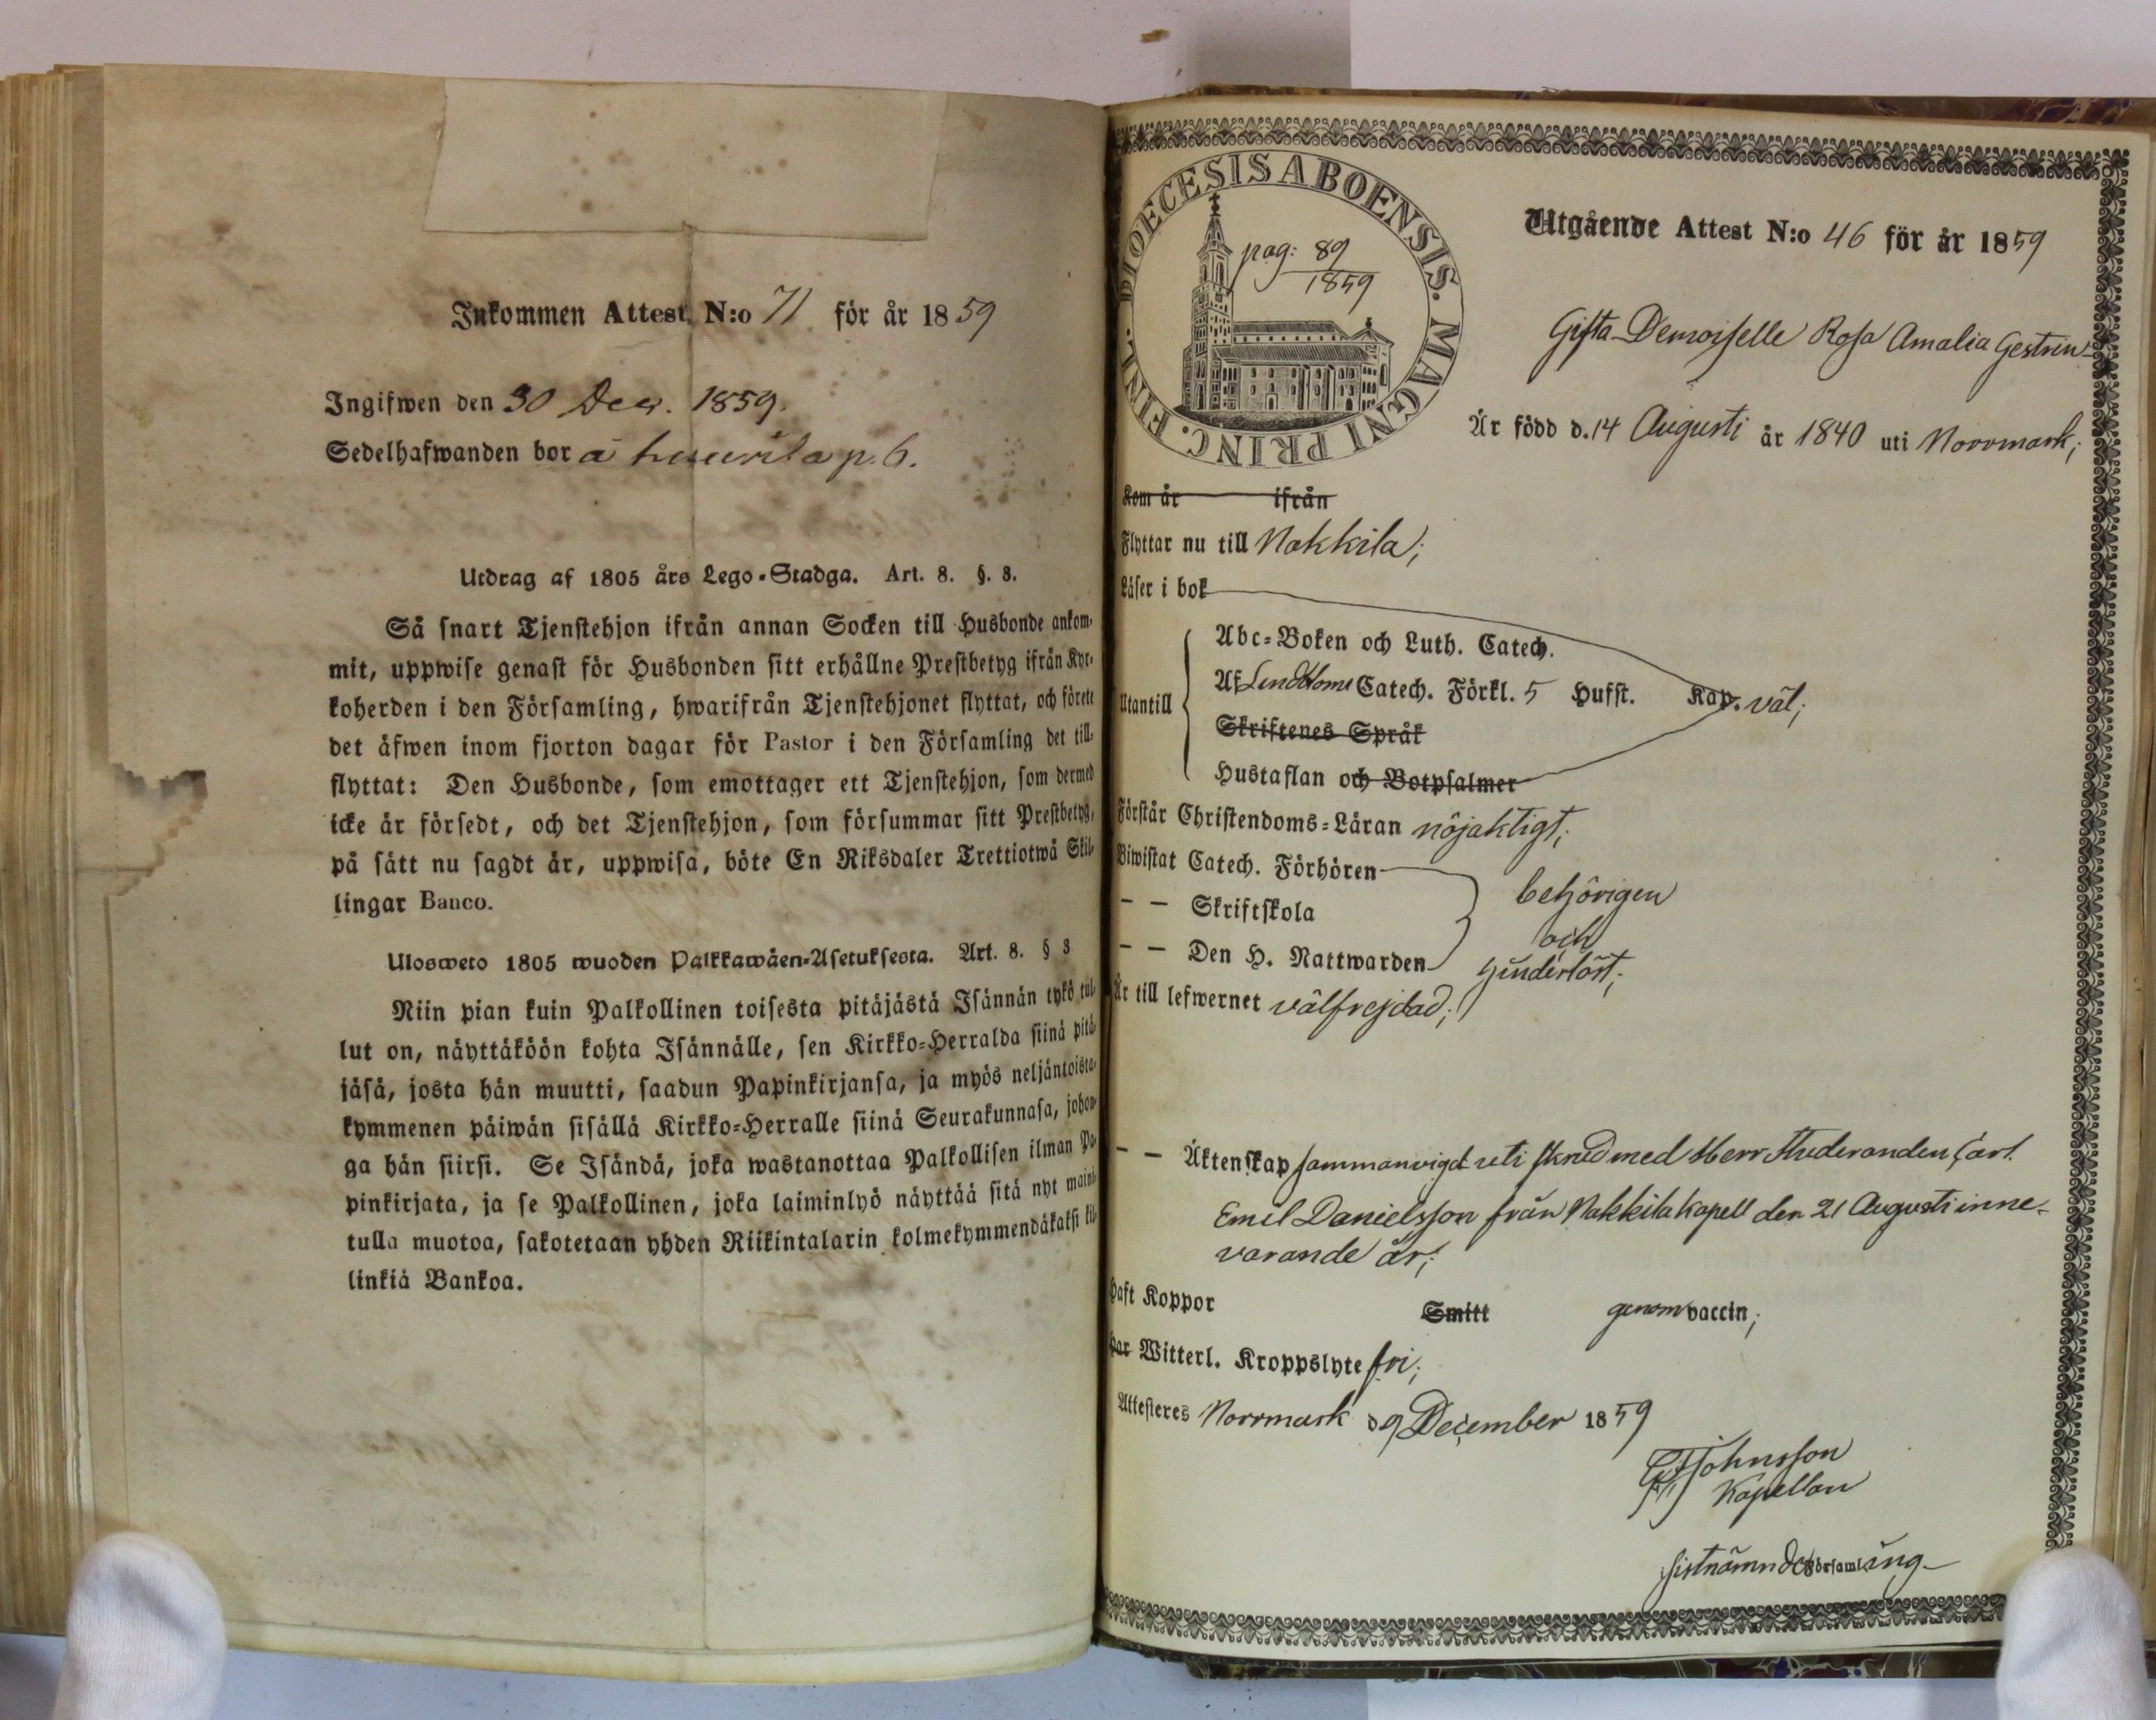 Inkommen Attest N:o 71 för år 1859
Ingifwen den 30 Dec. 1859.
Sedelhafwanden bor å p. 6.
Utdrag af 1805 års Lego-Stadga. Art. 8. §. 3.
Så snart Tjenstehjon ifrån annan Socken till Husbonde ankom-
mit, uppwise genast för Husbonden sitt erhållne Prestbetyg ifrån Kyr-
koherden i den Församling, hwarifrån Tjenstehjonet flyttat, och förete
det äfwen inom fjorton dagar för Pastor i den Församling det till-
flyttat: Den Husbonde, som emottager ett Tjenstehjon, som dermed
icke är försedt, och det Tjenstehjon, som försummar sitt Prestbetyg,
på sätt nu sagdt är, uppwisa, böte En Riksdaler Trettiotwå Skil-
lingar Banco.
Ulosweto 1805 wuoden Palkkawäen-Asetuksesta. Art. 8. § 3
Niin pian kuin Palkollinen toisesta pitäjästä Isännän tykö tul-
lut on, näyttäköön kohta Isännälle, sen Kirkko-Herralda siinä pitä-
jäsä, josta hän muutti, saadun Papinkirjansa, ja myös neljäntoista-
kymmenen päiwän sisällä Kirkko-Herralle siinä Seurakunnasa, johon-
ga hän siirsi. Se Isändä, joka wastanottaa Palkollisen ilman Pa-
pinkirjata, ja se Palkollinen, joka laiminlyö näyttää sitä nyt maini-
tulla muotoa, sakotetaan yhden Riikintalarin kolmekymmendäkaksi kil-
linkiä Bankoa.
DIOECESIS ABOENSIS. MAGNI PRINC. FINL.
pag: 89
1859
Utgående Attest N:o 46 för år 1859
Gifta Demoiselle Rosa Amalia Gestrin
Är född d. 14 Augusti år 1840 uti Norrmark;
Kom år ifrån
Flyttar nu till Nakkila;
Läser i bok
Utantill
Abc-Boken och Luth. Catech.
Af Lindbloms Catech. Förkl. 5 Hufst. Kap. väl;
Skriftenes Språk
Hustaflan och Botpsalmer
Förstår Christendoms-Läran nöjaktigt;
Biwistat Catech. Förhören
— — Skriftskola
— — Den H. Nattwarden
behörigen
och
hinderlöst;
Är till lefwernet välfrejdad;
— — Äktenskap sammanvigd uti skrud med Herr Studeranden Carl
Emil Danielsson från Nakkila kapell den 21 Augusti inne-
varande år;
Haft Koppor Smitt genom vaccin;
Har Witterl. Kroppslyte fri;
Attesteras Norrmark d 9 December 1859
Johnsson
Kapellan
sistnämnde Församling